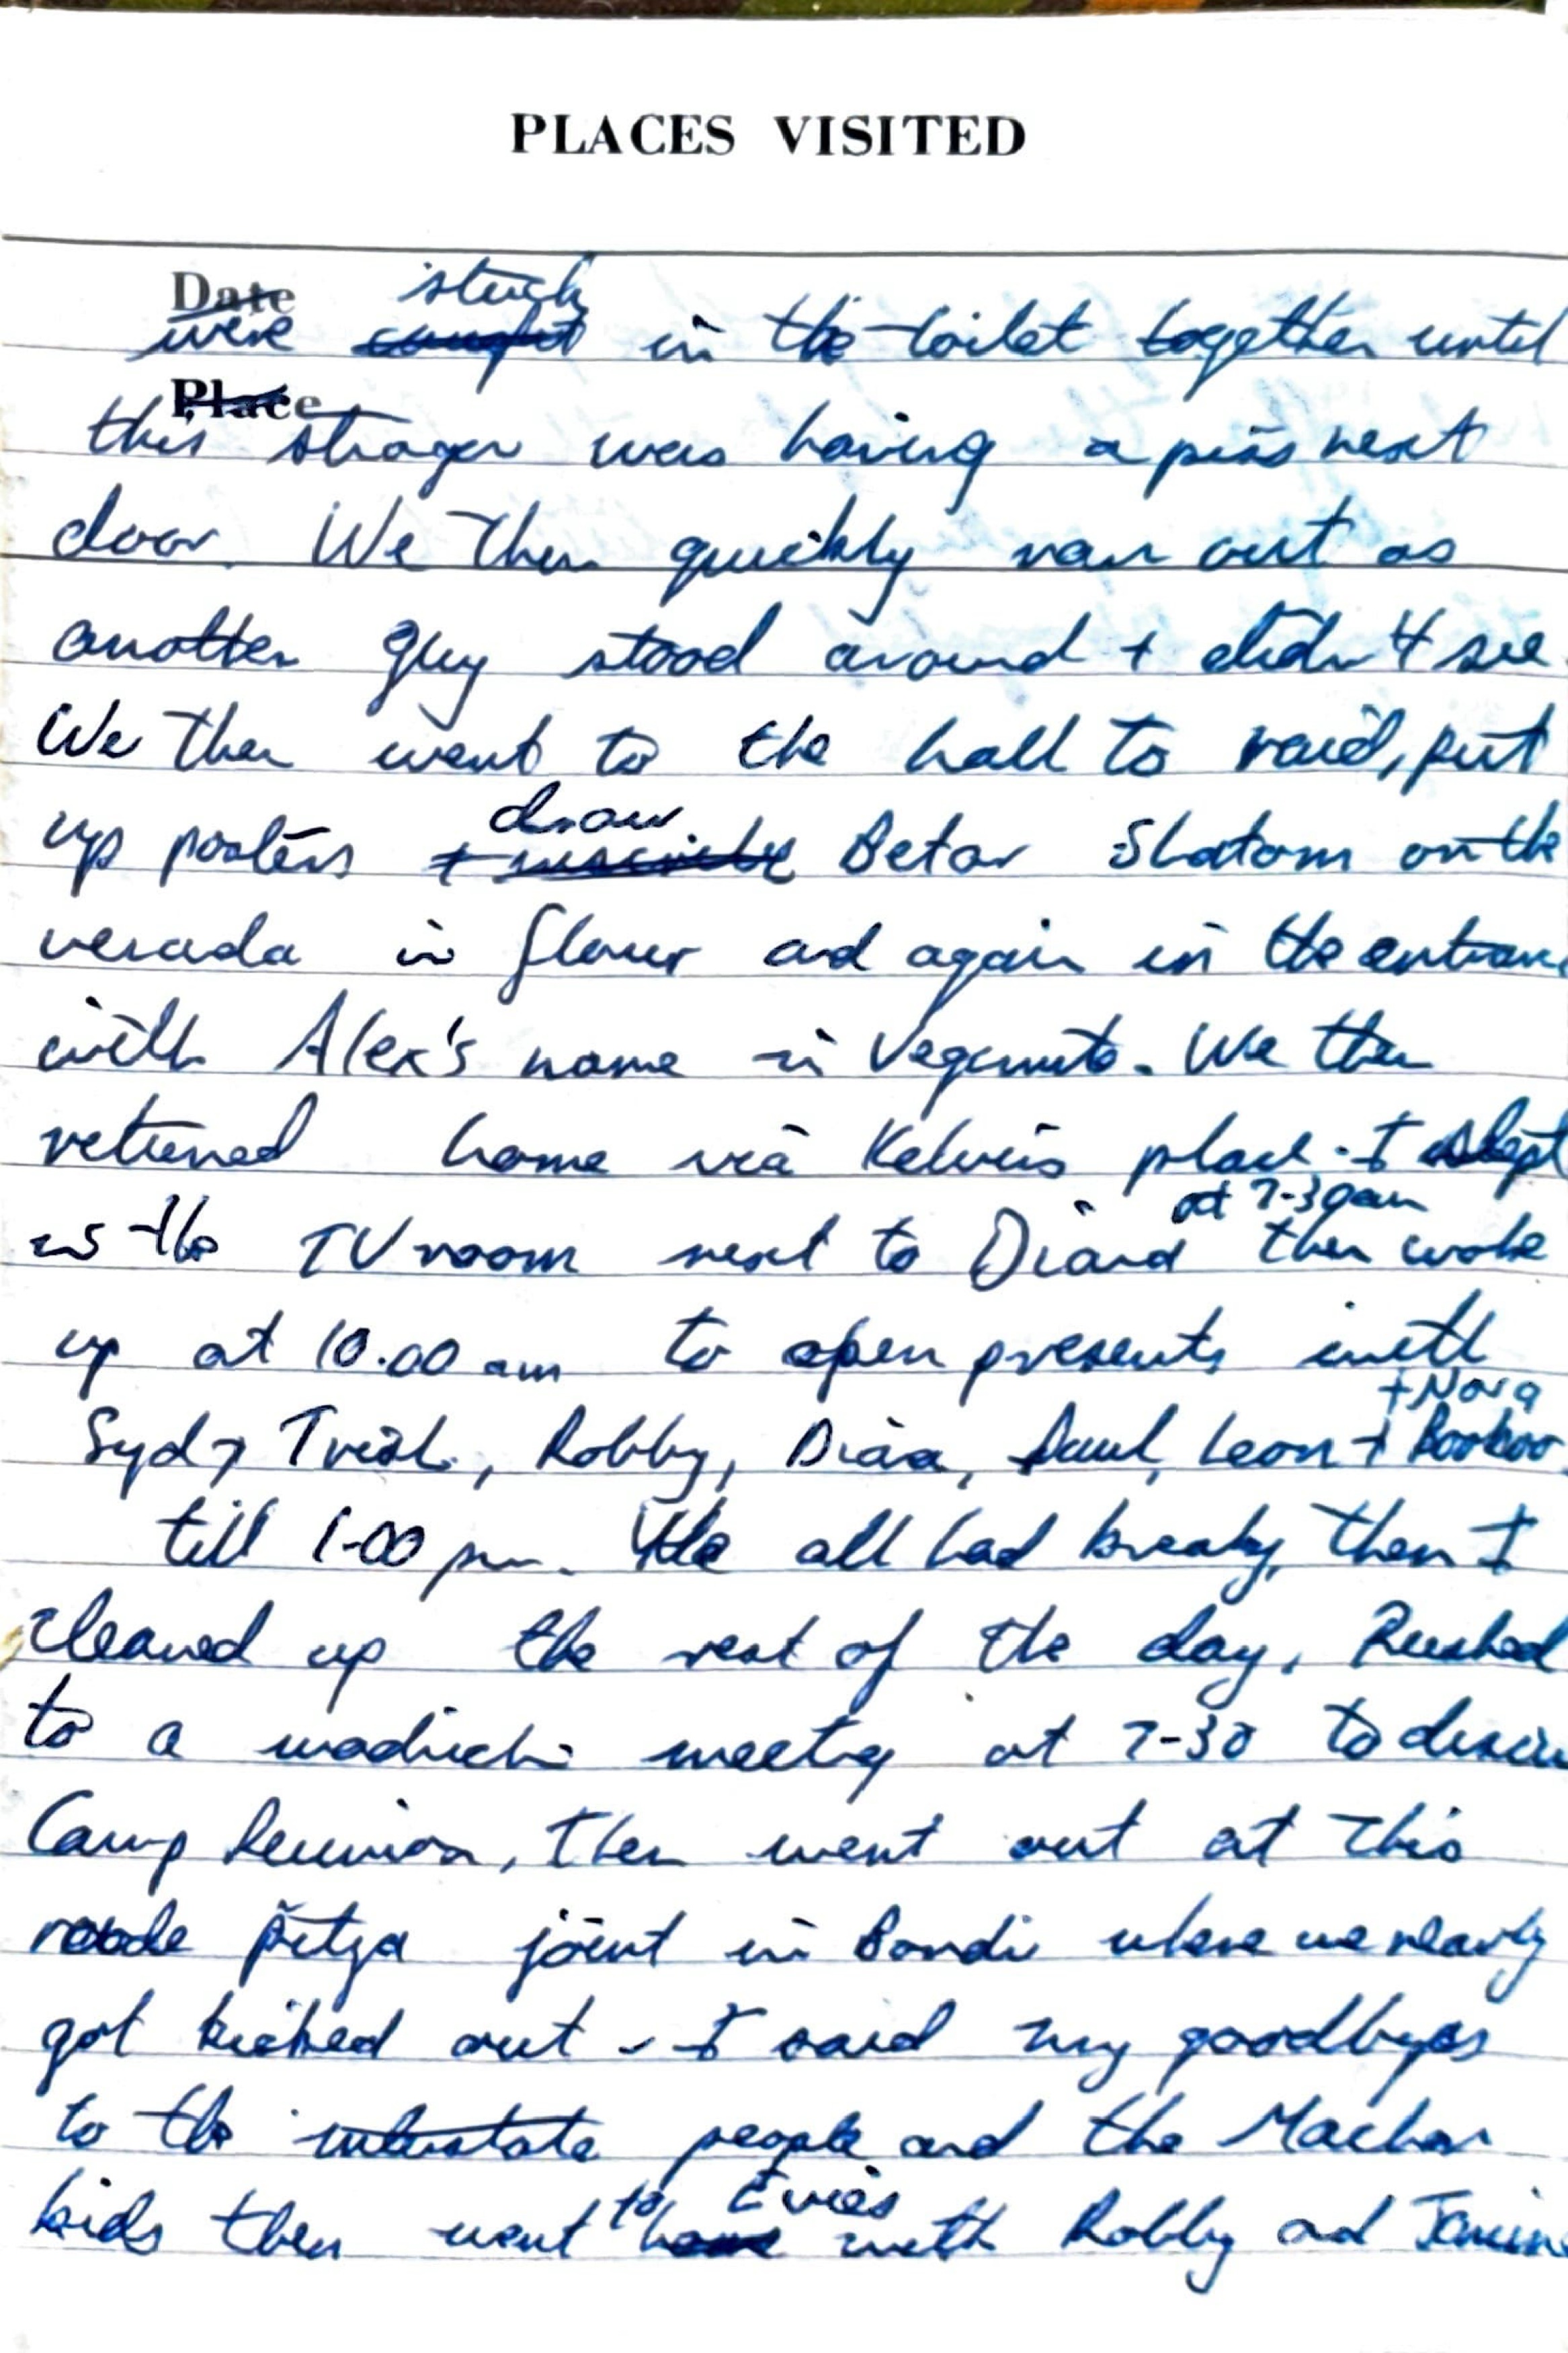 PLACES VISITED
Date stuck
were caught in the toilet together until
Place
this strager was having a piss next
door. We then quickly ran out as
another guy stood around + didn't see.
We then went to the hall to raid, put
up posters + draw Betar Shatom on the
verada in flour and again in the entrance
with Alex's name in Vegemite. We then
retuned home via Kelvin's place. I slept
in the TV room next to Diand at 7-30am then woke
up at 10.00 am to open presents with
Syd, Trish, Robby, Diaa, Paul, Leon + Booboo + Nora
till 1-00 pm. We all had breaky, then I
cleaned up the rest of the day. Rushed
to a madrichi meetig at 7-30 to discuss
Camp Reunion, then went out at this
pitza joint in Bondi where we nearly
got kicked out. I said my goodbyes
to the interstate people and the Machon
kids then went to Evie's with Robby and Janine